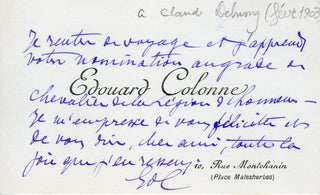 a Claud Debussy (févr 1903
Je rentre de voyage et j'apprends
votre nomination au grade de
Edouard Colonne
chevalier de la Légion d'honneur –
Je m'empresse de vous féliciter et
de vous dire, cher ami, toute la
joie que j'en ressens
10, Rue Montchanin
(Place Malesherbes)
EdC